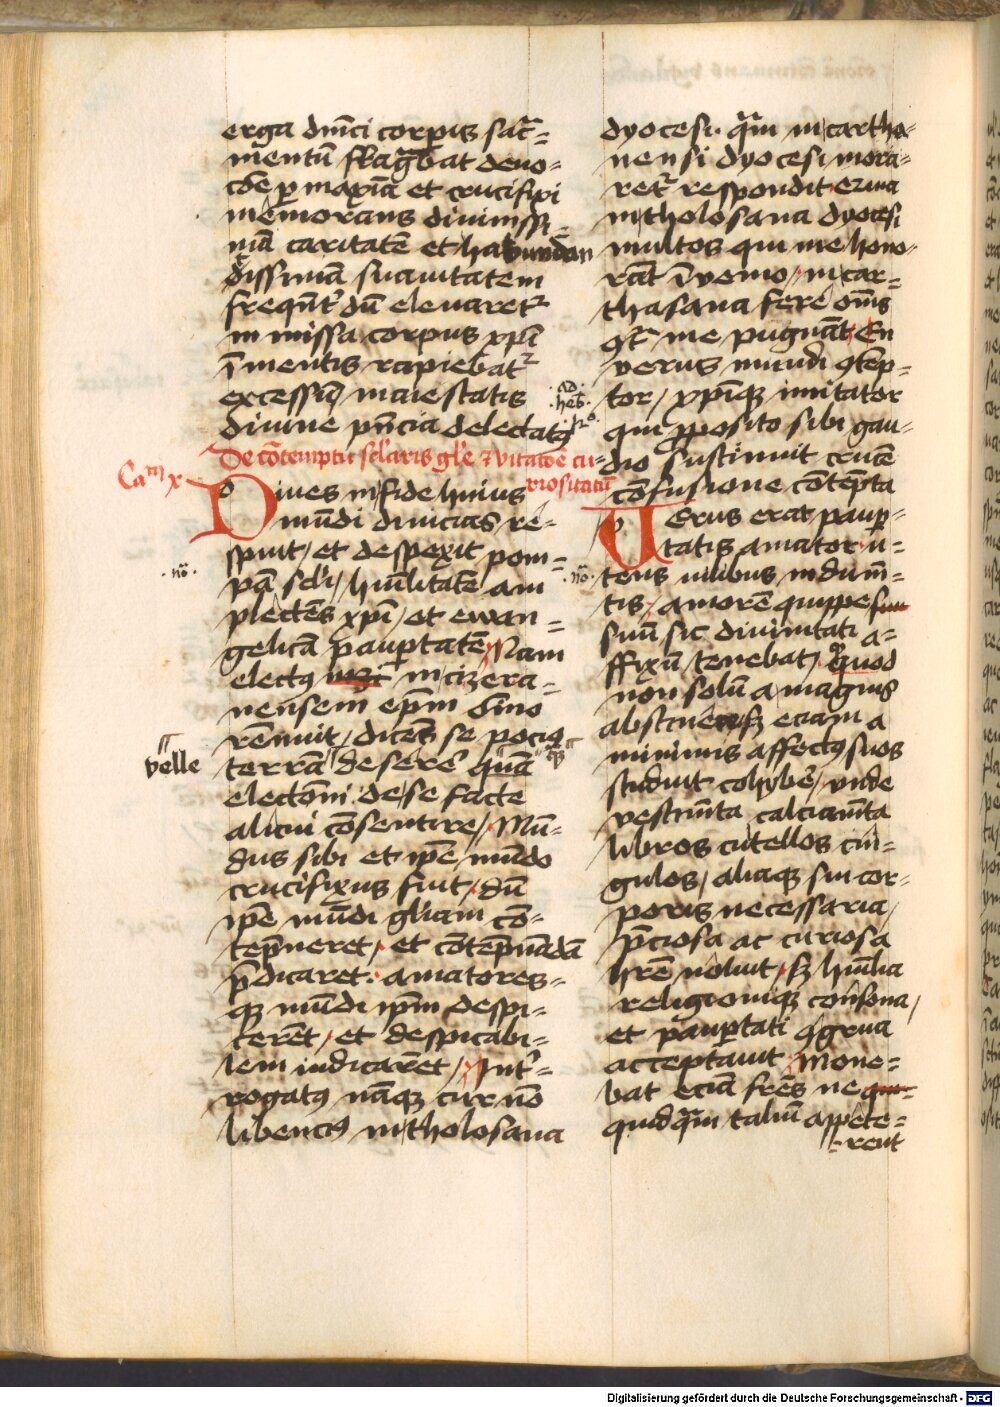 erga dnīci corpis sac̄=
mentū flag̃bat deuo-
cōe p maxīa et crucifixi
memorans diuiniss̄i=
mā caritatē et habundan
dissimā suauitatem
freqn̄t dū eleuaret
in missa corpus xp̄i
ī mentis rapiebat
excessū maiestatis
diuine pn̄cia delectatꝰ
De cōtemptu sclaris gl'e ⁊ vitacōe cu-
riositatū
Caᵐ x
Diues in fide huius
mūdi diuicias re-
spuit, et despexit pom=
pā scl'i, huīlitatē am
plectēs xp̄i, et ewan=
gelicā paupertatē Nam
electꝰ in cizera=
nensem ep̄m oīno
renuit, dicēs se pociꝰ
velle
terrā deserē quā
electōni de se facte
alicui cōsentire, Mū=
dus sibi et ip̄e mūdo
crucifixus fuit, dū
ip̄e mūdi gl'iam cō-
tēpneret, et cōtēpnēdā
p̄dicaret. amatores-
qꝫ mūdi ip̄m despi-
cerēt, et despicabi-
lem iudicarēt, Int'-
rogatꝰ nāqꝫ cur nō
libenciꝰ in tholosana
dyocesi. qm̄ in cartha-
nensi dyocesi mora-
ret respondit
in tholosana dyocesi
multos qui me hono-
rāt īuenio, in car=
thasana fere om̄s
9t me pugnāt, En
verus mundi 9tēp=
tor, xp̄iqꝫ imitator
qui proposito sibi gau-
dio sustinuit crucē
cōfusione cōtēpta
Uerus erat paup-
tatis amator u=
tens vilibus indumē=
tis, amorē quippe
suū sic diuinitati a=
ffixū tenebat, quod
non solū a magnis
absttuē sꝫ eciam a
minimis affectꝰ suos
studuit cohyberē, vnde
vestimēta calciamēta
libros cutellos cin=
gulos, aliaqꝫ sui cor-
poris necessaria,
p̄ciosa ac curiosa
hr̄e noluit, sꝫ huīlia
religioniqꝫ consona,
et paupertati 9grua
acceptauit, Mone=
bat eciā frēs ne
quidqm̄ taliū appete=
=rent
Digitalisierung gefördert durch die Deutsche Forschungsgemeinschaft - DFG